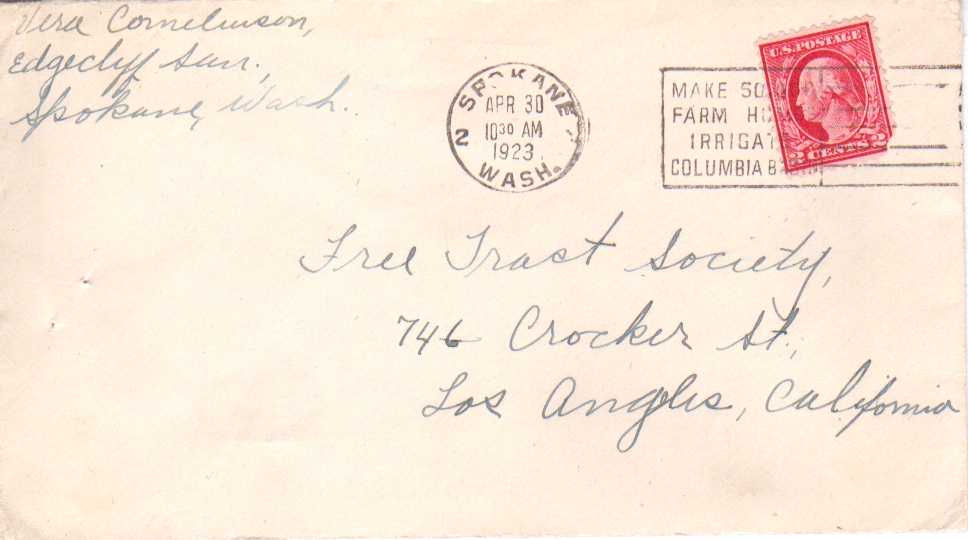 Vera Corneliuson,
Edgeclyf San.,
Spokane, Wash.
SPOKANE
APR 30
10 30 AM
1923
WASH.
2
MAKE
FARM
COLUMBIA
U.S. POSTAGE
2 CENTS 2
Free Tract Society,
746 Crocker St,
Los Angeles, California